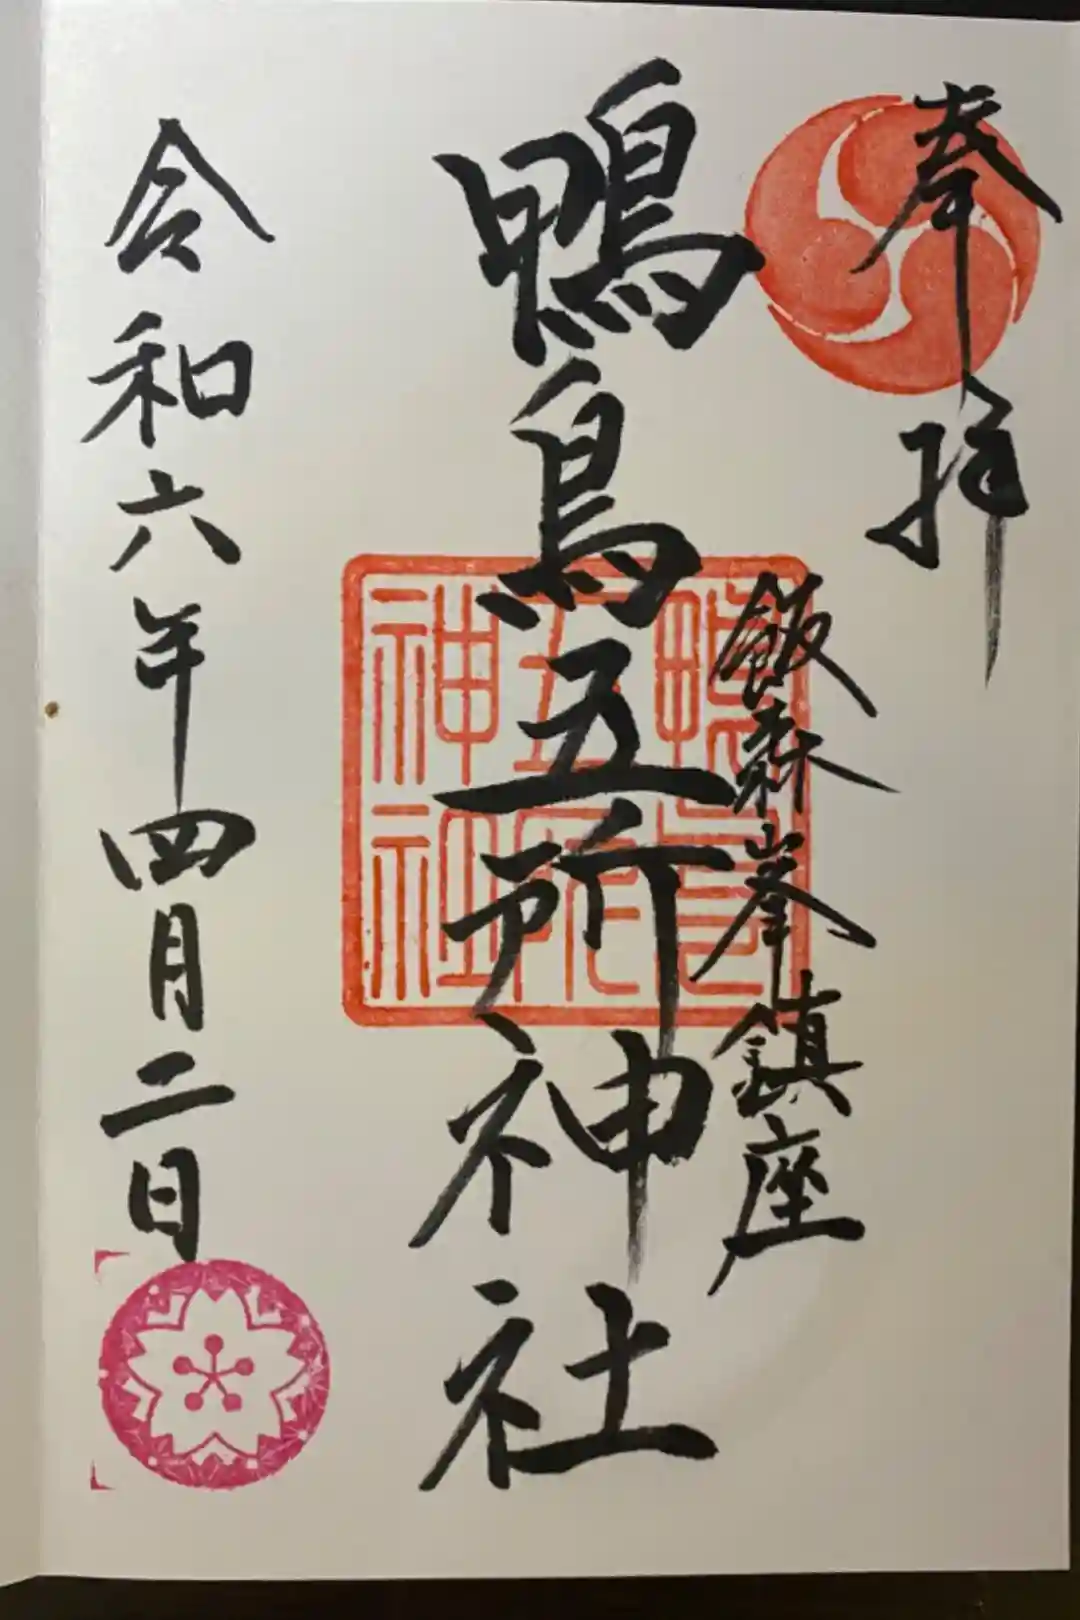 奉拝
飯森峯鎮座
鴨鳥五所神社
令和六年四月二日
鴨鳥
五所
神社